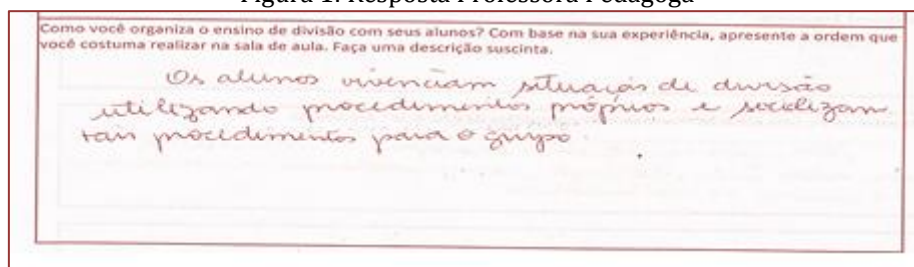 Figura 1: Resposta Professora Pedagoga
Como você organiza o ensino de divisão com seus alunos? Com base na sua experiência, apresente a ordem que
você costuma realizar na sala de aula. Faça uma descrição suscinta.
Os alunos vivenciam situações de divisão
utilizando procedimentos próprios e socializam
tais procedimentos para o grupo.